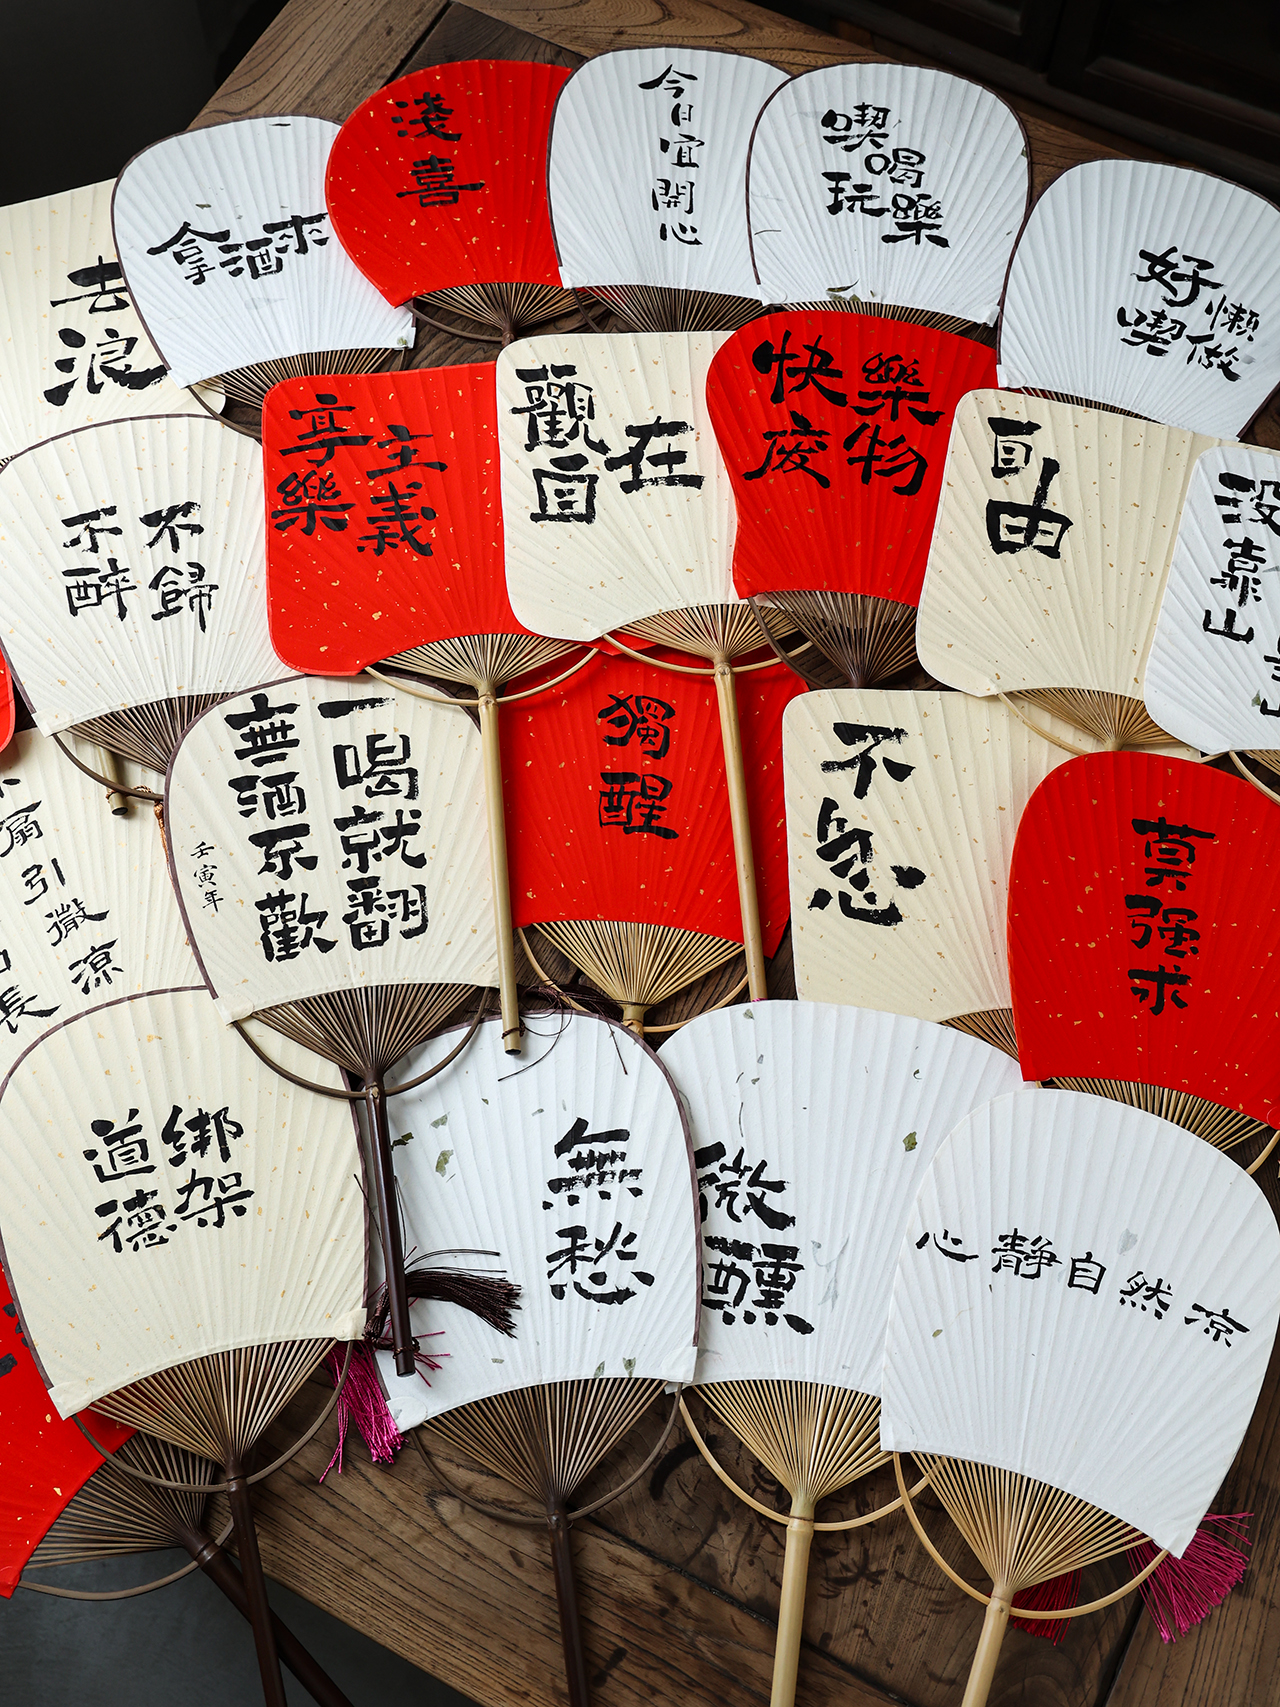 去浪
拿酒來
淺喜
今日宜開心
喫喝
玩樂
好懶
喫做
不醉
不歸
享樂
主義
觀自
在
快樂
廢物
自由
沒靠山
無酒不歡
一喝就翻
壬寅年
獨醒
不急
莫强求
扇引微涼
長
道德
綁架
無愁
微醺
心靜自然涼